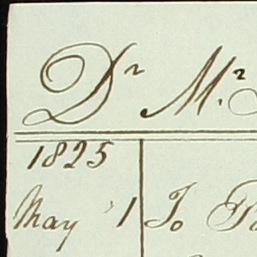 Dr Mr.
1825
May 1 To